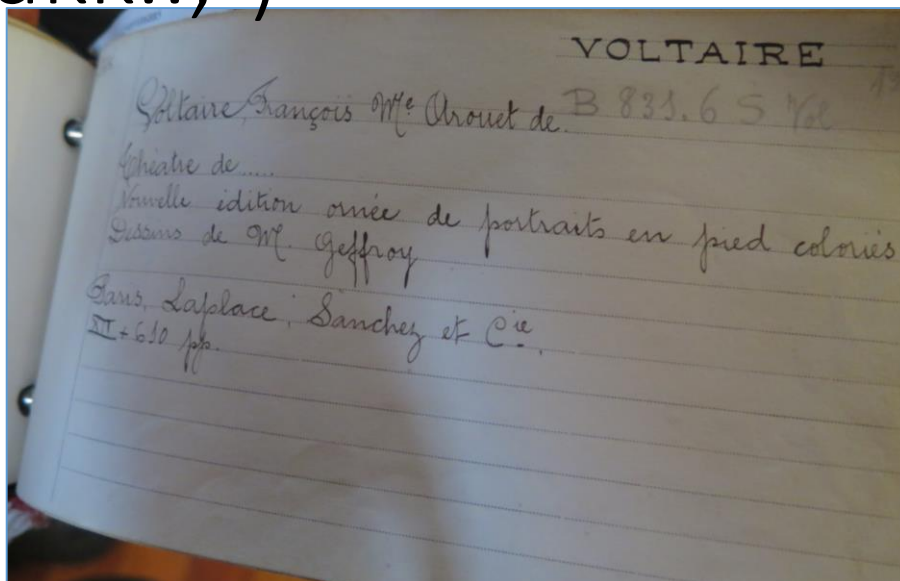 VOLTAIRE
Voltaire, François Me Arouet de. B 831.6 S Vol
Théatre de.....
Nouvelle édition ornée de portraits en pied coloriés
Dessins de M. Geffroy
Paris, Laplace, Sanchez et Cie.
+ 610 pp.